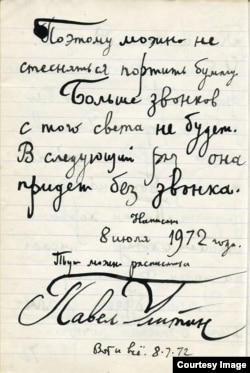 Поэтому можно не
стесняться портить бумагу.
Больше звонков
с того света не будет.
В следующий раз она
придет без звонка.
Написал
8 июля 1972 года.
Тут можно расписаться
Павел Улитин
Вот и всё. 8.7.72
Courtesy Image